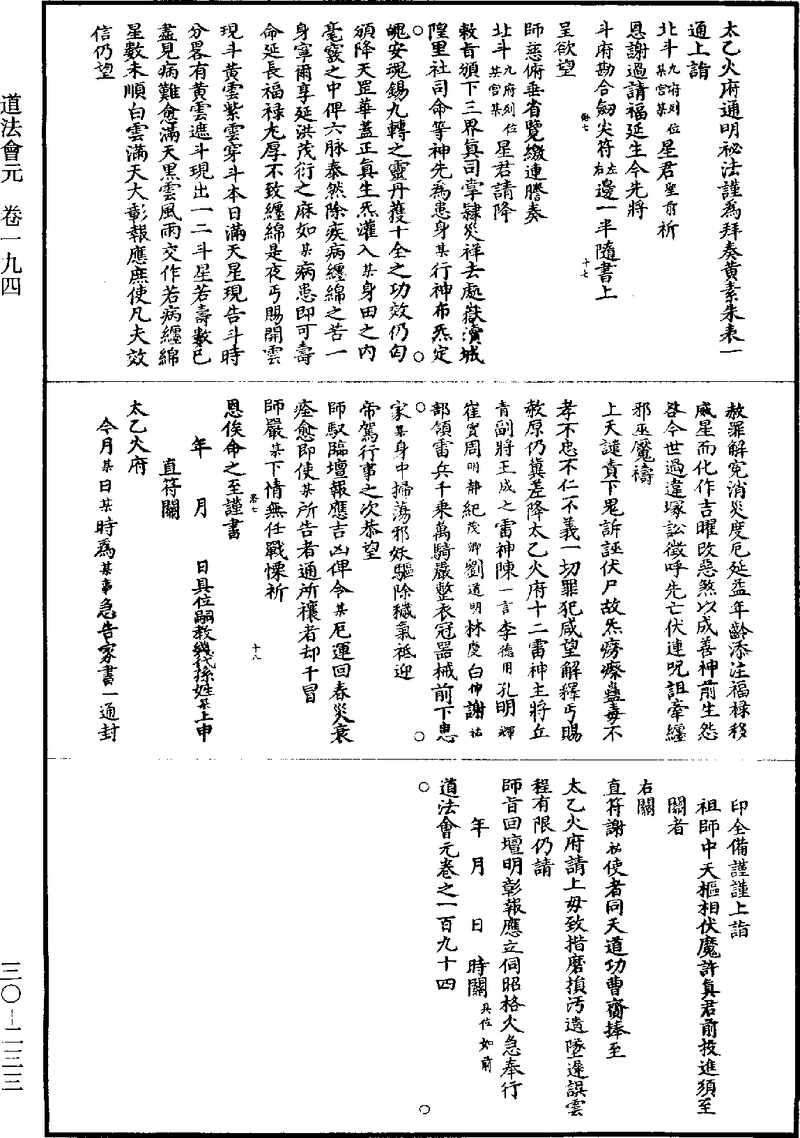 太乙火府通明祕法謹為拜奏黃素朱表一
通上詣
北斗九府列位某宮某星君聖前祈
恩謝過請福延生今先將
斗府勘合劒尖符左右邊一半隨書上
卷七 十七
呈欲望
師慈俯垂省覽繳連謄奏
北斗九府列位某宮某星君請降
敕旨頒下三界真司掌隸災祥去處嶽瀆城
隍里社司命等神先為患身某行神布炁定
魄安魂錫九轉之靈丹獲十全之功效仍匄
頒降天罡華蓋正真生炁灌入某身田之內
毫竅之中俾六脉泰然除疾病纏綿之苦一
身寧爾享延洪茂衍之庥如某病患即可壽
命延長福祿尤厚不致纏綿是夜丐賜開雲
現斗黃雲紫雲穿斗本日滿天星現告斗時
分畧有黃雲遮斗現出一二斗星若壽數已
盡見病難愈滿天黑雲風雨交作若病纏綿
星數未順白雲滿天大彰報應庶使凡夫效
信仍望
赦罪解冤消災度厄延益年齡添注福祿移
威星而化作吉曜改惡煞以成善神前生怨
咎今世過違塚訟徵呼先亡伏連呪詛牽纏
邪巫魘禱
上天譴責下鬼訴誣伏尸故炁癆瘵蠱毒不
孝不忠不仁不義一切罪犯咸望解釋丐賜
赦原仍冀差降太乙火府十二雷神主將丘
青副將王成之雷神陳一言李德用孔明輝
崔寶周明靜紀茂卿劉道明林度白伸謝祐
部領雷兵千乘萬騎嚴整衣冠器械前下患
家某身中掃蕩邪妖驅除穢氣祗迎
帝駕行事之次恭望
師馭臨壇報應吉凶俾令某厄運回春災衰
痊愈即使某所告者通所禳者却干冒
師嚴某下情無任戰慄祈
卷七 十八
恩俟命之至謹書
年 月 日具位嗣教幾代孫姓某上申
直符關
太乙火府
今月某日某時為某事急告家書一通封
印全備謹謹上詣
祖師中天樞相伏魔許真君前投進須至
關者
右關
直符謝祐使者同天道功曹齎捧至
太乙火府請上毋致揩磨損汚遺墜違誤雲
程有限仍請
師旨回壇明彰報應立伺昭格火急奉行
年 月 日 時關具位如前
道法會元卷之一百九十四
道法會元 卷一九四
三〇－二三三